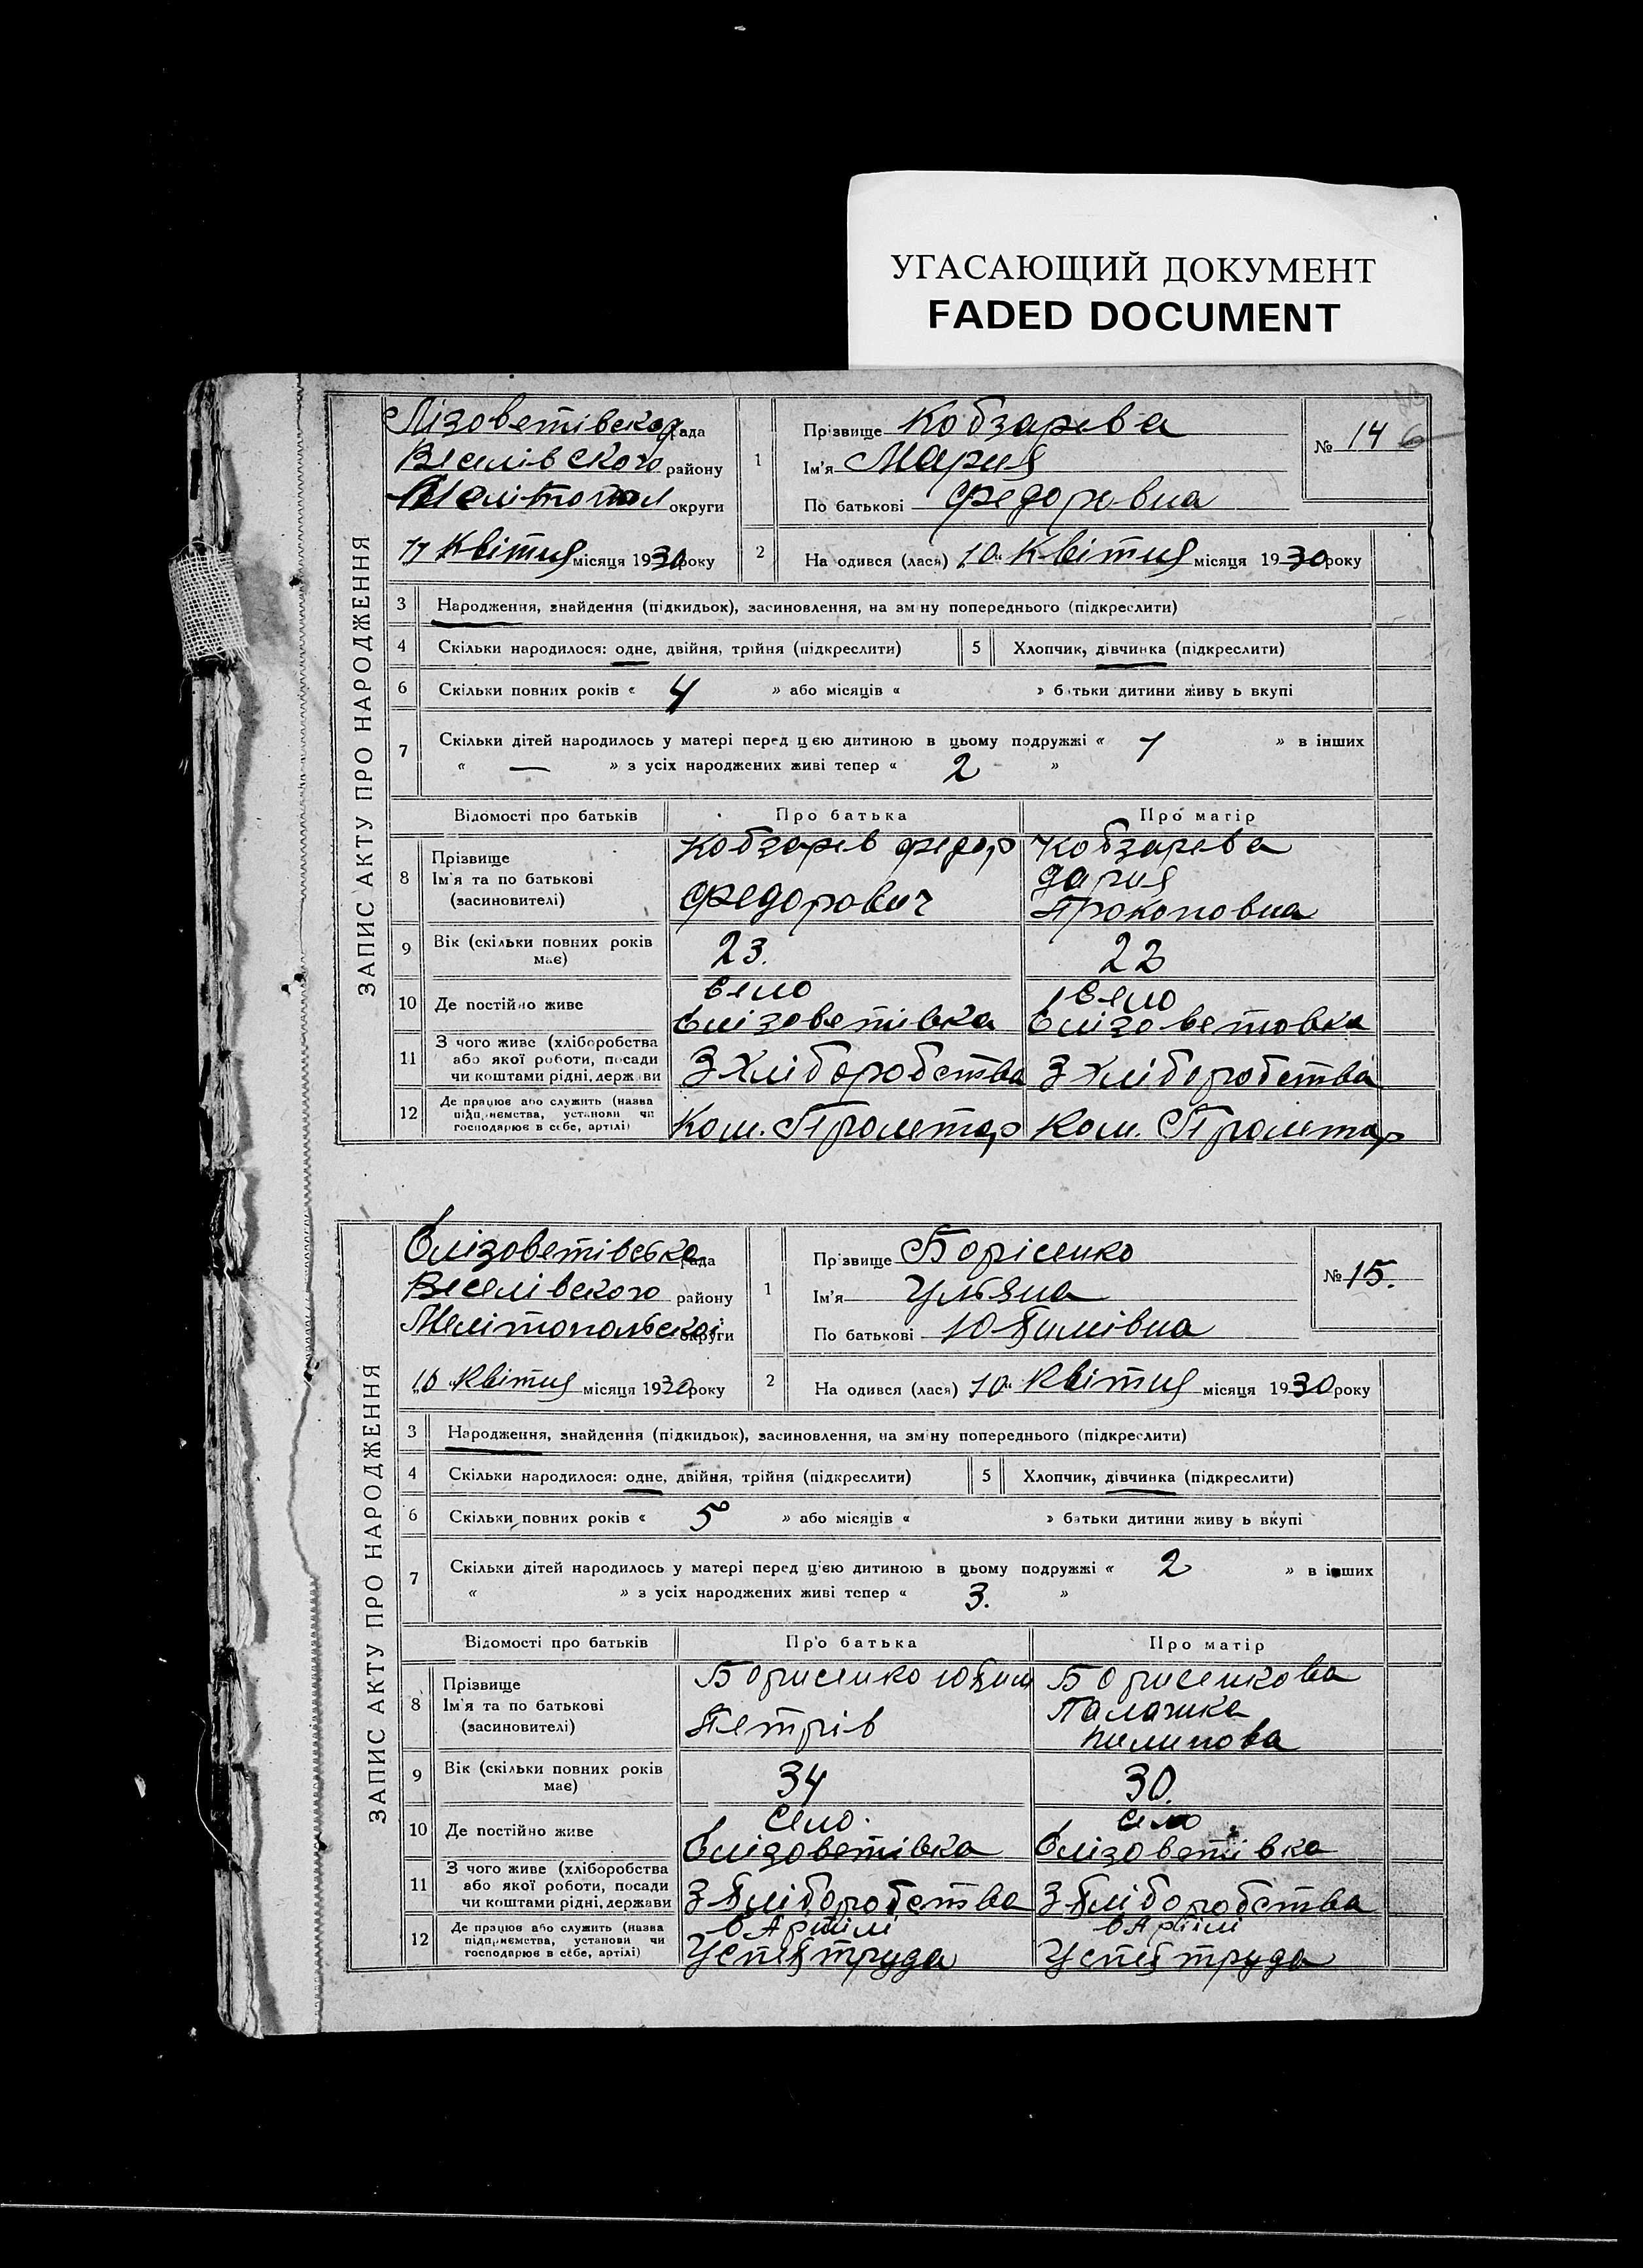 УГАСАЮЩИЙ ДОКУМЕНТ
FADED DOCUMENT
ЗАПИС АКТУ ПРО НАРОДЖЕННЯ
Лізоветівская рада
Веселівского району
Мелітопол округи
11 Квітня місяця 1930 року
1
Прізвище Кобзарева
Ім'я Мария
По батькові Федоровна
№ 14
2
На одився (лася) 10 Квітня місяця 1930 року
3 Народження, знайдення (підкидьок), засиновлення, на зміну попереднього (підкреслити)
4 Скільки народилося: одне, двійня, трійня (підкреслити) 5 Хлопчик, дівчинка (підкреслити)
6 Скільки повних років « 4 » або місяців « » батьки дитини живу ь вкупі
7 Скільки дітей народилось у матері перед цією дитиною в цьому подружжі « 1 » в інших
« — » з усіх народжених живі тепер « 2 »
Відомості про батьків Про батька Про матір
8 Прізвище
Ім'я та по батькові
(засиновителі)
Кобзарев Федор
Федорович
Кобзарева
Дария
Прокоповна
9 Вік (скільки повних років має) 23. 22
10 Де постійно живе
село
Єлізоветівка
село
Єлізоветовка
11 З чого живе (хліборобства
або якої роботи, посади
чи коштами рідні, держави
З хліборобства З хліборобства
12 Де працює або служить (назва
підприємства, установи чи
господарює в себе, артілі)
Ком. Пролетар Ком. Пролетар
ЗАПИС АКТУ ПРО НАРОДЖЕННЯ
Єлізоветівська рада
Веселівского району
Мелітопольської округи
10 Квітня місяця 1930 року
1
Прізвище Борісенко
Ім'я Ульяна
По батькові Юхимівна
№ 15.
2
На одився (лася) 10 Квітня місяця 1930 року
3 Народження, знайдення (підкидьок), засиновлення, на зміну попереднього (підкреслити)
4 Скільки народилося: одне, двійня, трійня (підкреслити) 5 Хлопчик, дівчинка (підкреслити)
6 Скільки повних років « 5 » або місяців « » батьки дитини живу ь вкупі
7 Скільки дітей народилось у матері перед цією дитиною в цьому подружжі « 2 » в інших
« » з усіх народжених живі тепер « 3. »
Відомості про батьків Про батька Про матір
8 Прізвище
Ім'я та по батькові
(засиновителі)
Борисенко Юхим
Петрів
Борисенкова
Палашка
Пилипова
9 Вік (скільки повних років має) 34 30.
10 Де постійно живе
село.
Єлізоветівка
село
Єлізоветівка
11 З чого живе (хліборобства
або якої роботи, посади
чи коштами рідні, держави
З хліборобства З хліборобства
12 Де працює або служить (назва
підприємства, установи чи
господарює в себе, артілі)
в Артілі
Успех труда
в Артілі
Успех труда